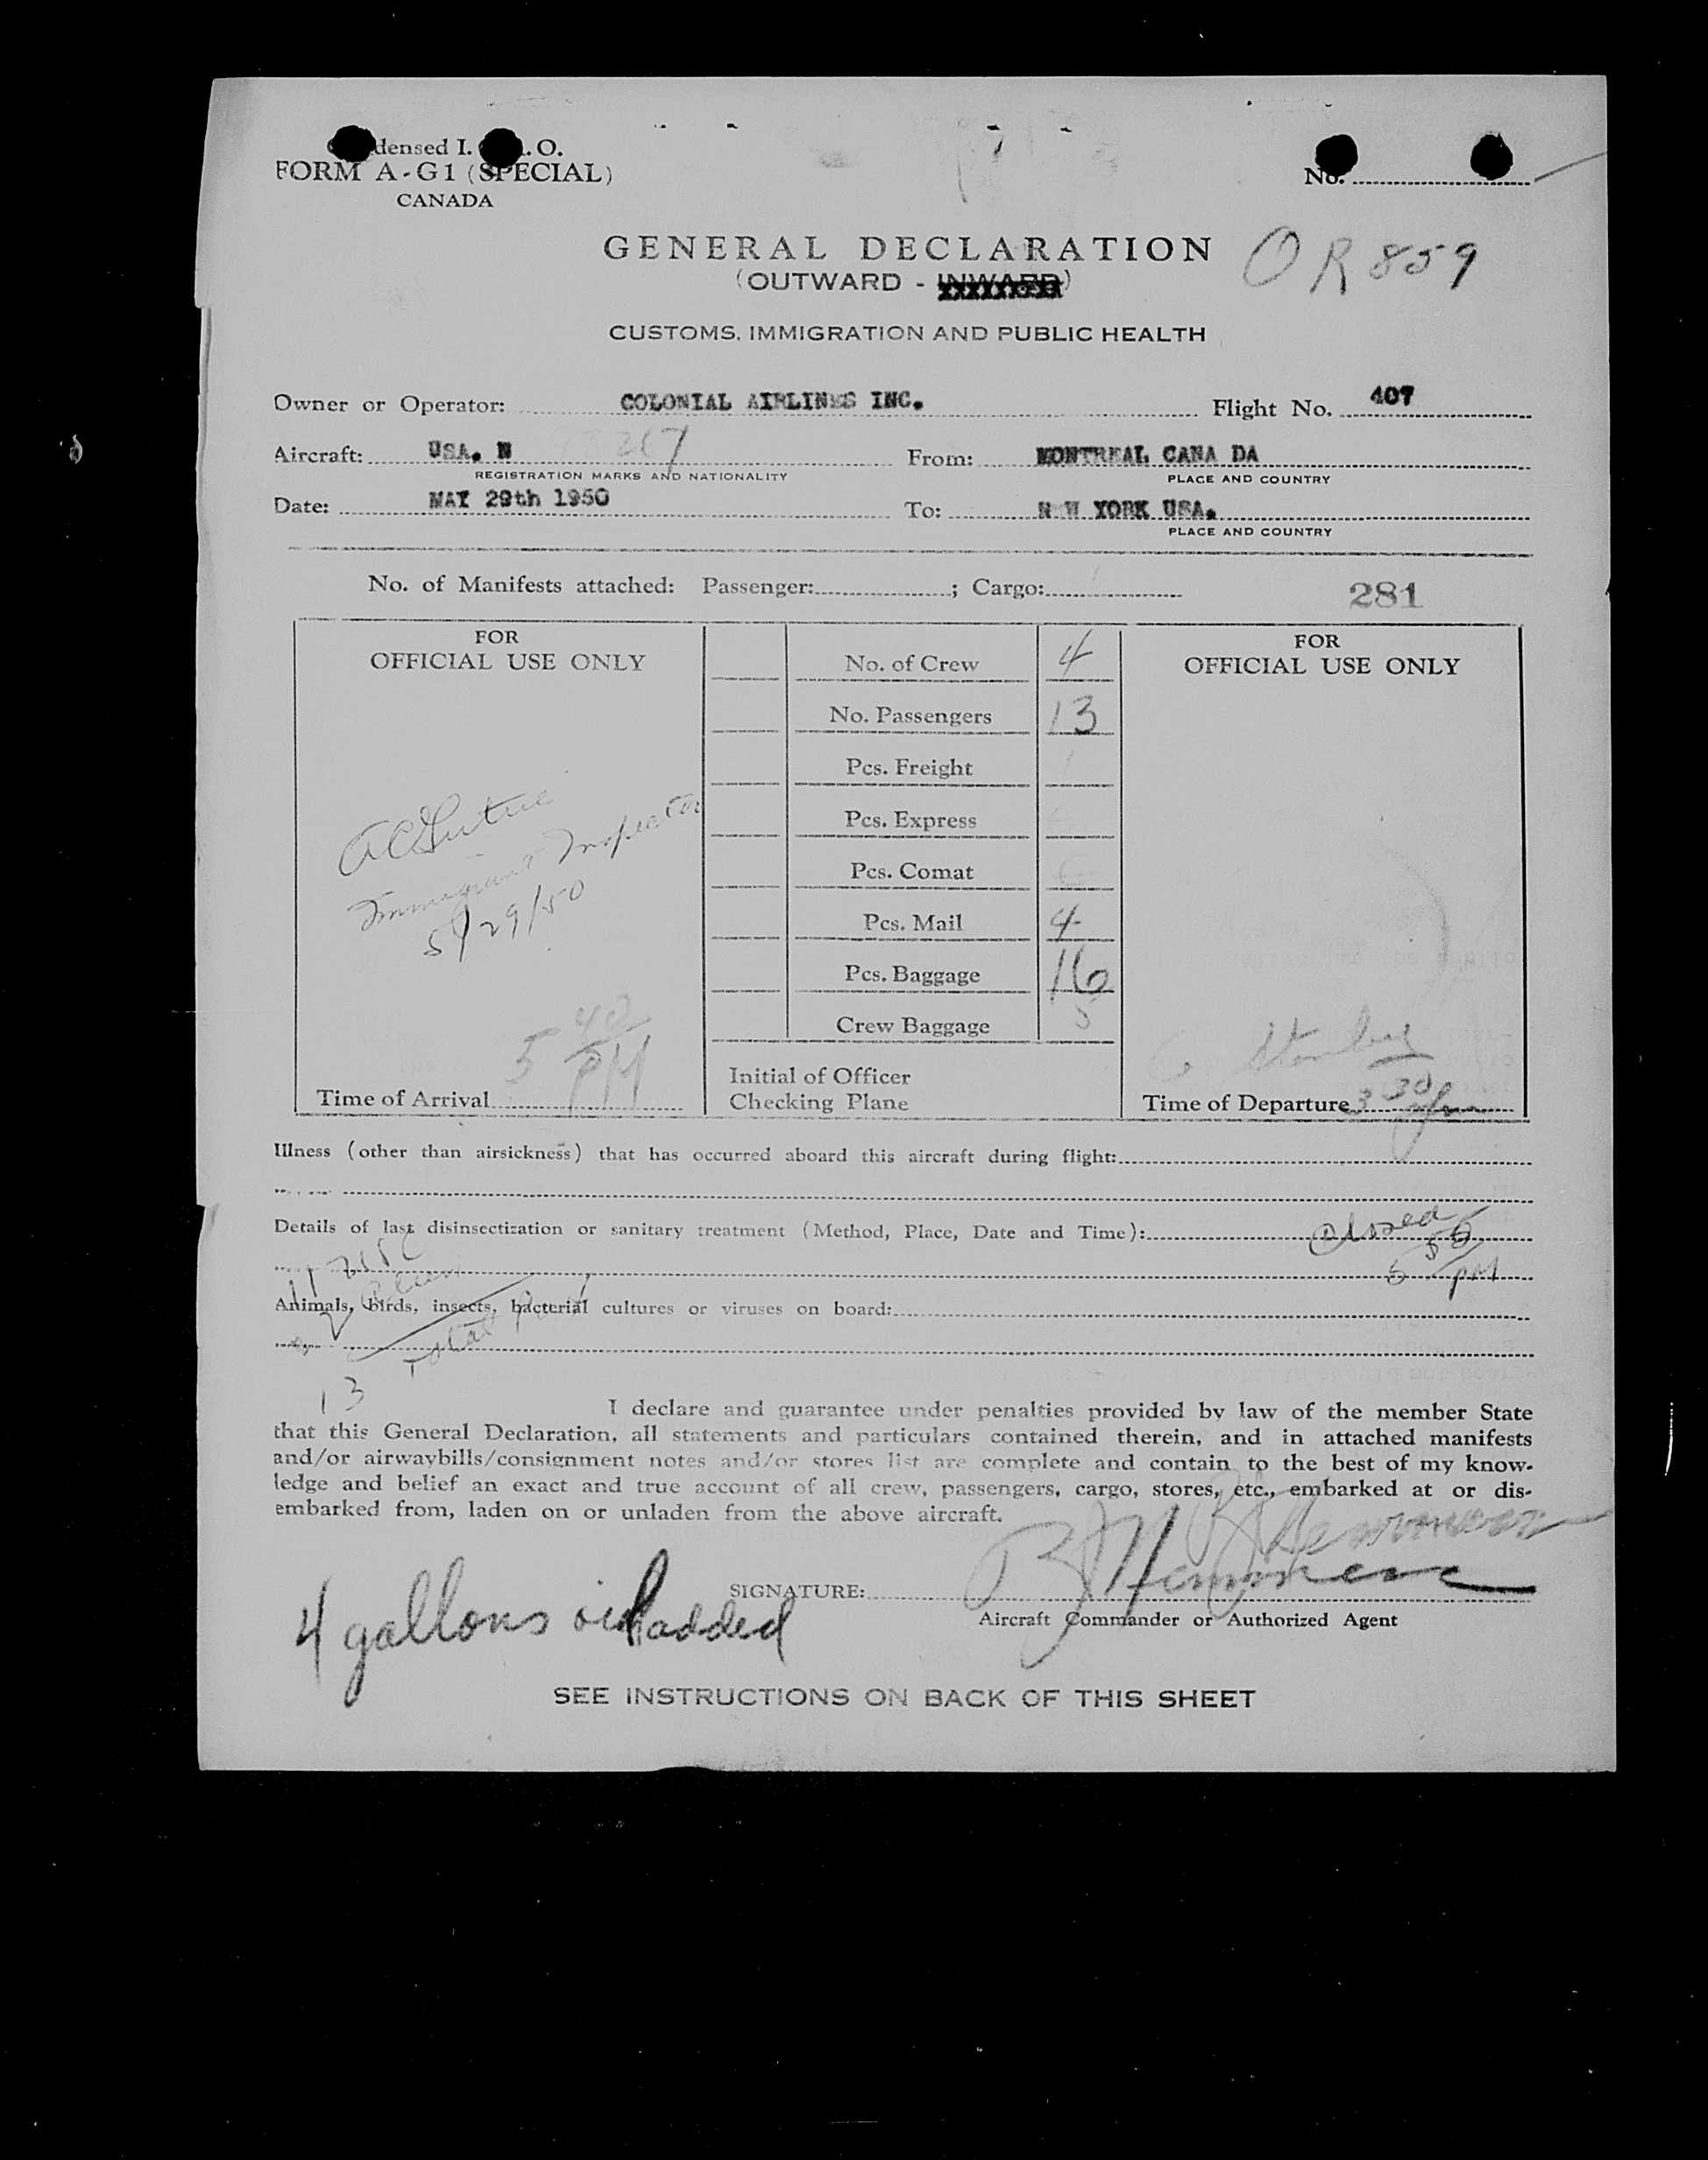 densed I. .O.
FORM A-G1 (SPECIAL)
CANADA
No.
GENERAL DECLARATION
OR 859
(OUTWARD - INWARD)
CUSTOMS, IMMIGRATION AND PUBLIC HEALTH
Owner or Operator: COLONIAL AIRLINES INC. Flight No. 407
Aircraft: USA. N From: MONTREAL CANA DA
REGISTRATION MARKS AND NATIONALITY PLACE AND COUNTRY
Date: MAY 29th 1950 To: N W YORK USA.
PLACE AND COUNTRY
No. of Manifests attached: Passenger: ; Cargo:
281
FOR
OFFICIAL USE ONLY
Immigrant Inspector
5/29/50
5 40 PM
Time of Arrival
No. of Crew 4
No. Passengers 13
Pcs. Freight
Pcs. Express
Pcs. Comat
Pcs. Mail 4
Pcs. Baggage 16
Crew Baggage 5
Initial of Officer
Checking Plane
FOR
OFFICIAL USE ONLY
Time of Departure 3 30 pm
Illness (other than airsickness) that has occurred aboard this aircraft during flight:
Details of last disinsectization or sanitary treatment (Method, Place, Date and Time): Closed
5 50 PM
11 USC
2 Alien
Animals, birds, insects, bacterial cultures or viruses on board:
13 Total
I declare and guarantee under penalties provided by law of the member State
that this General Declaration, all statements and particulars contained therein, and in attached manifests
and/or airwaybills/consignment notes and/or stores list are complete and contain to the best of my know-
ledge and belief an exact and true account of all crew, passengers, cargo, stores, etc., embarked at or dis-
embarked from, laden on or unladen from the above aircraft.
SIGNATURE:
Aircraft Commander or Authorized Agent
4 gallons oil added
SEE INSTRUCTIONS ON BACK OF THIS SHEET